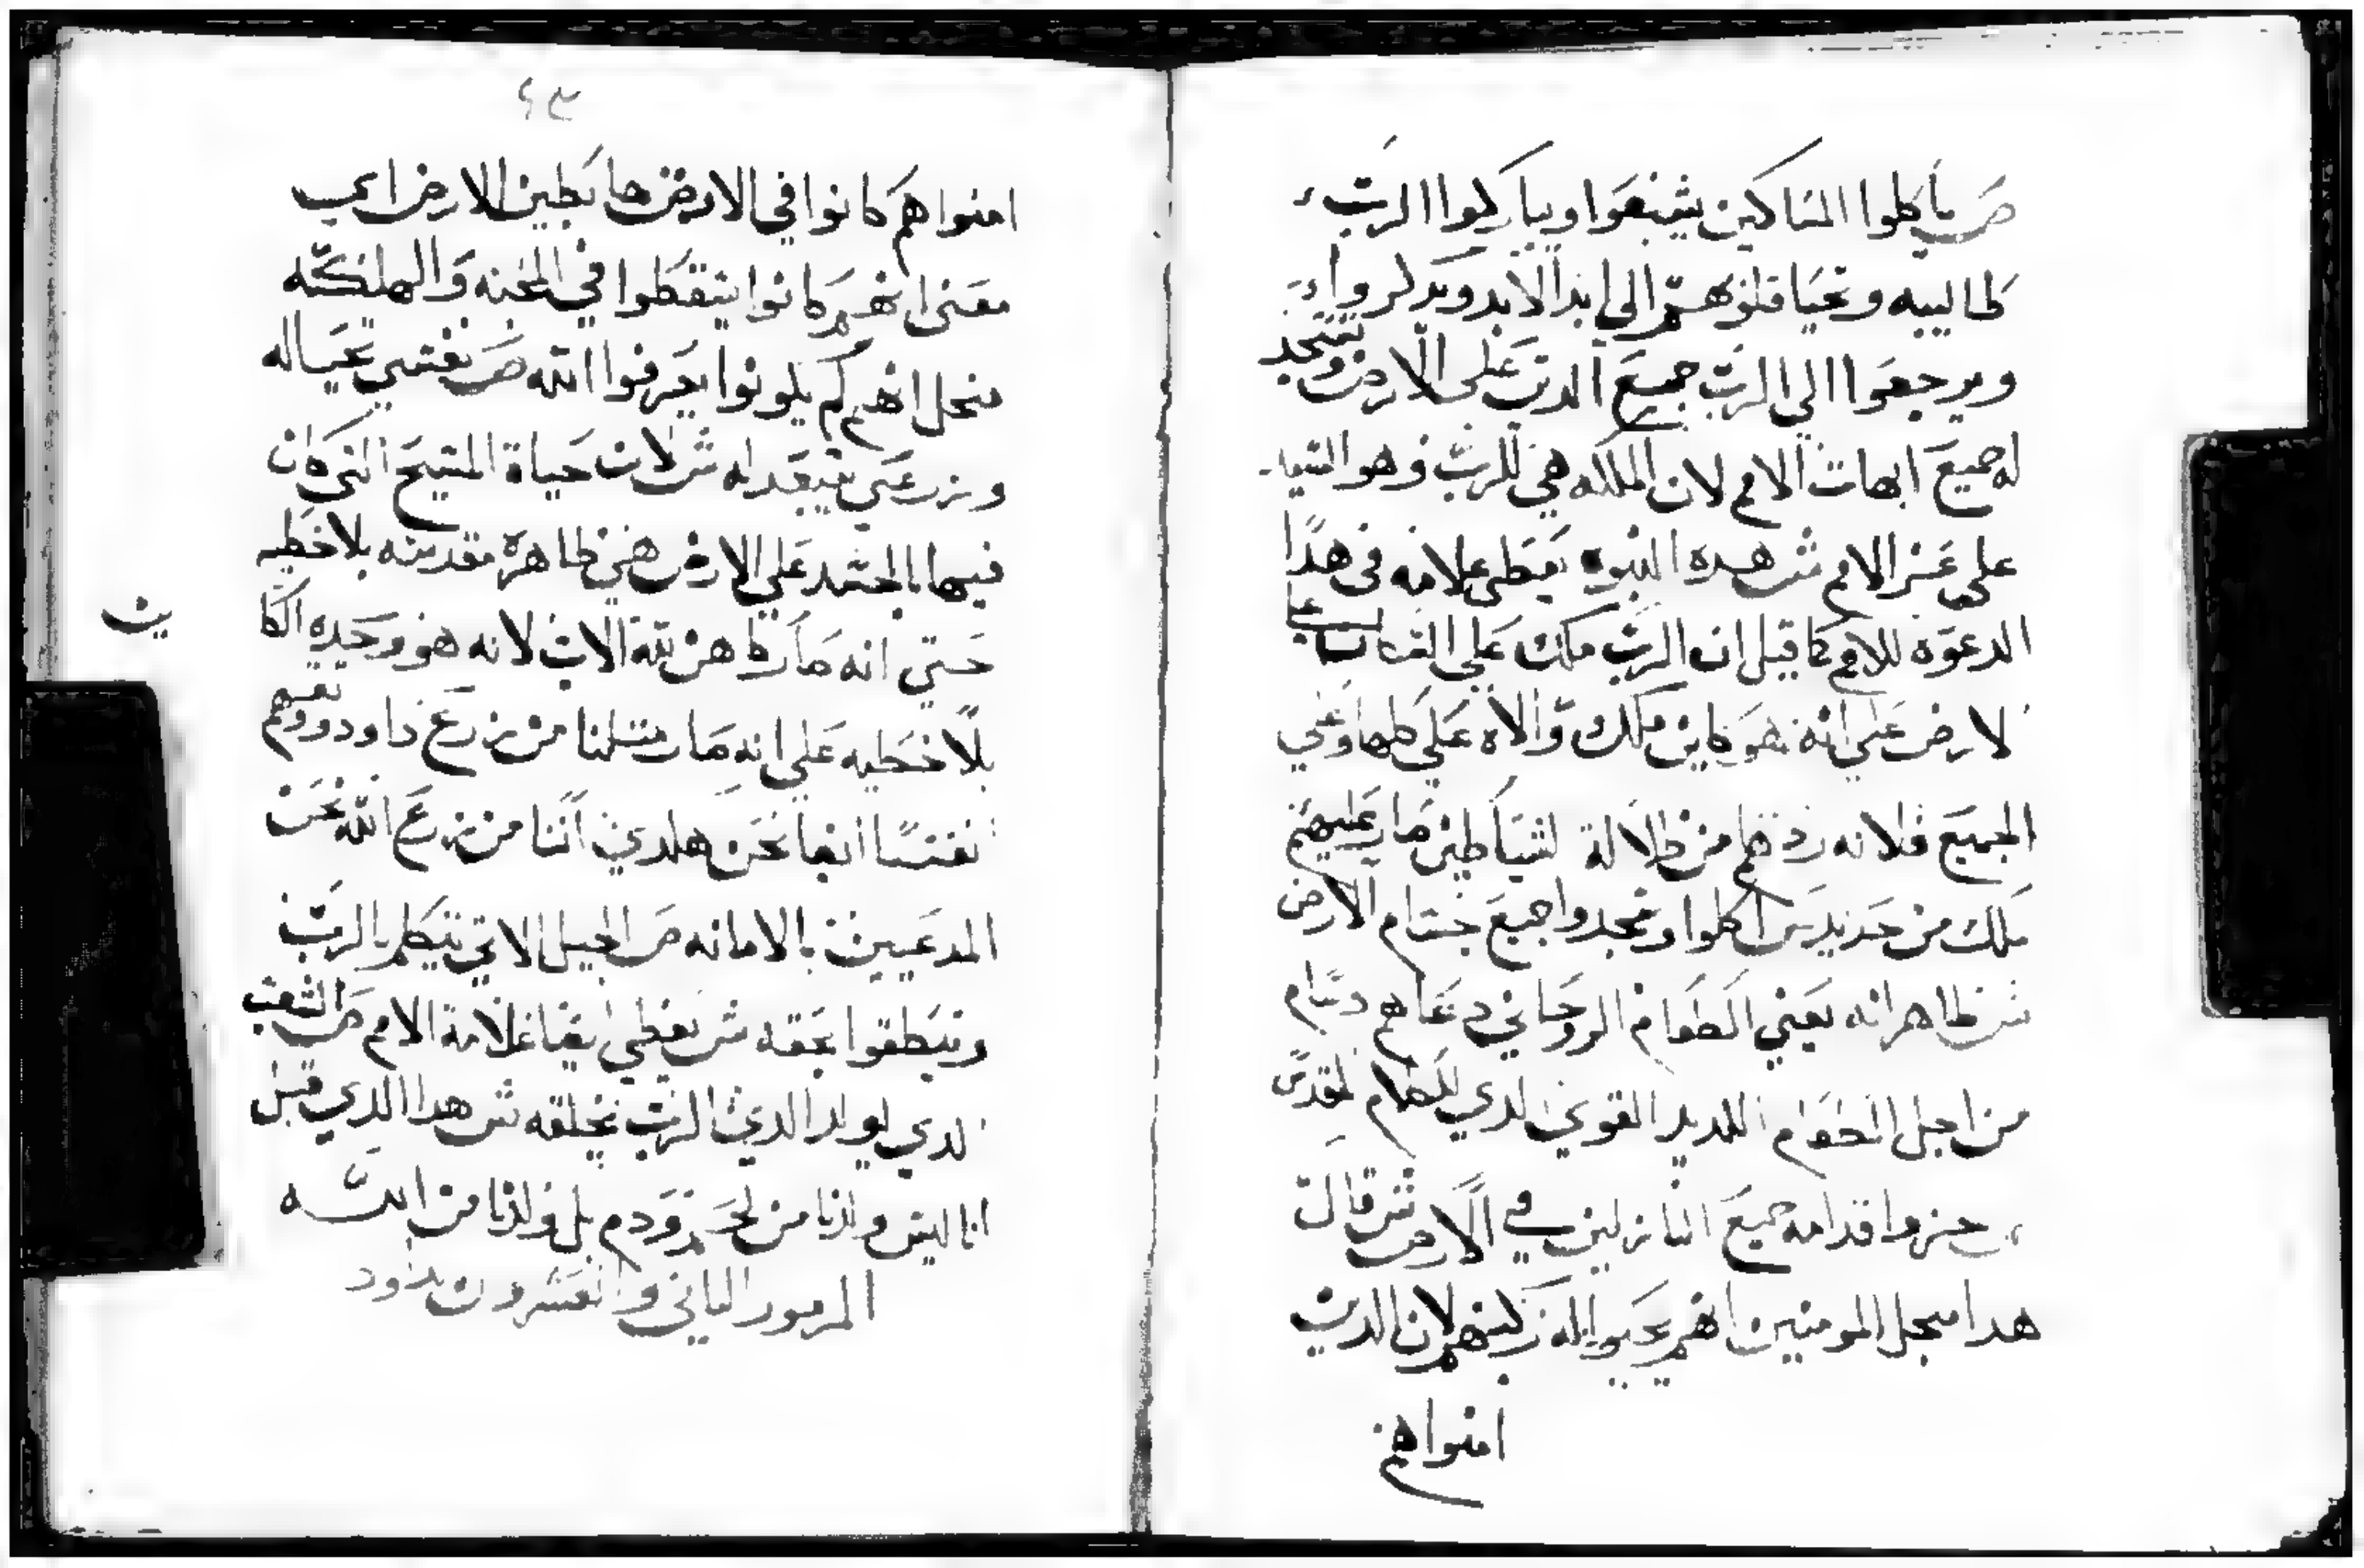 ص ياكلوا المساكين يشبعوا ويباركوا الرب
طالبيه وتحيا قلوبهم الى ابد الابد ويدكروا
ويرجعوا الى الرب جميع الدين على الارض وتسجد
له جميع ابهات الامم لان الملكه هي للرب وهو السيد
على الامم ش هده النبوه يعطي علامه في هدا
الدعوه للامم كما قيل ان الرب ملك على
لارض على انه هو كاين ملك والاه على كلها وعلى
الجميع فلانه ردهم من ظلالة لشياطين صار عليهم
ملك من جديد ص اكلوا وسجدوا جميع دسام الارض
ش ظاهر انه يعني الطعام الروحاني دعاهم دسام
من اجل الطعام اللديد القوي لدي
ص خروا قدامه جميع النازلين في الارض ش قال
هدا مجل المومنين انهم يحبوا لله ركبهم لان الدين
امنوا هم
٤٣
امنوا هم كانوا في الارض هابطين الارض اي
معنى انهم كانوا يسقطوا في الخنه والهلكه
منجل انهم لم يكونوا يعرفوا الله ص نفسي تحيا له
وزرعي يتعبد له ش لان حياة المسيح التي كان
فيها بالجسد على الارض هي طاهرة مقدسه بلا خطيه
حتى انه صار طاهر لله الاب لانه هو وحيده
بلا خطيه على انه صار متلنا من زرع داود
نفسا ايضا نحن هلدي اننا من زرع الله نحن
المدعيين بالامانه ص الجيل الاتي يتكلم بالرب
وينطقوا بحقه ش يعطي ايضا علامة الامم ص الشعب
لدي يولد الدي الرب يخلقه ش هدا الدي قيل
انا ليس ولدنا من لحم ودم بل ولدنا من الله
المزمور التاني والعشرون لداود